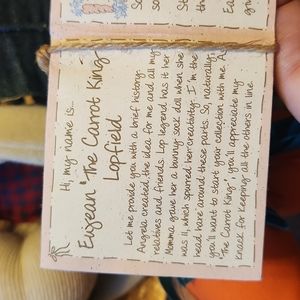 Hi, my name is...
Eugean "The Carrot King"
Lopfield
Let me provide you with a brief history:
Angela created the idea for me and all my
relatives and friends. Lop legend has it her
Momma gave her a bunny sock doll when she
was ll, which spurred her creativity. I'm the
head hare around these parts. So, naturally,
you'll want to start your collection with me. A
"The Carrot King", you'll appreciate my
knack for keeping all the others in line